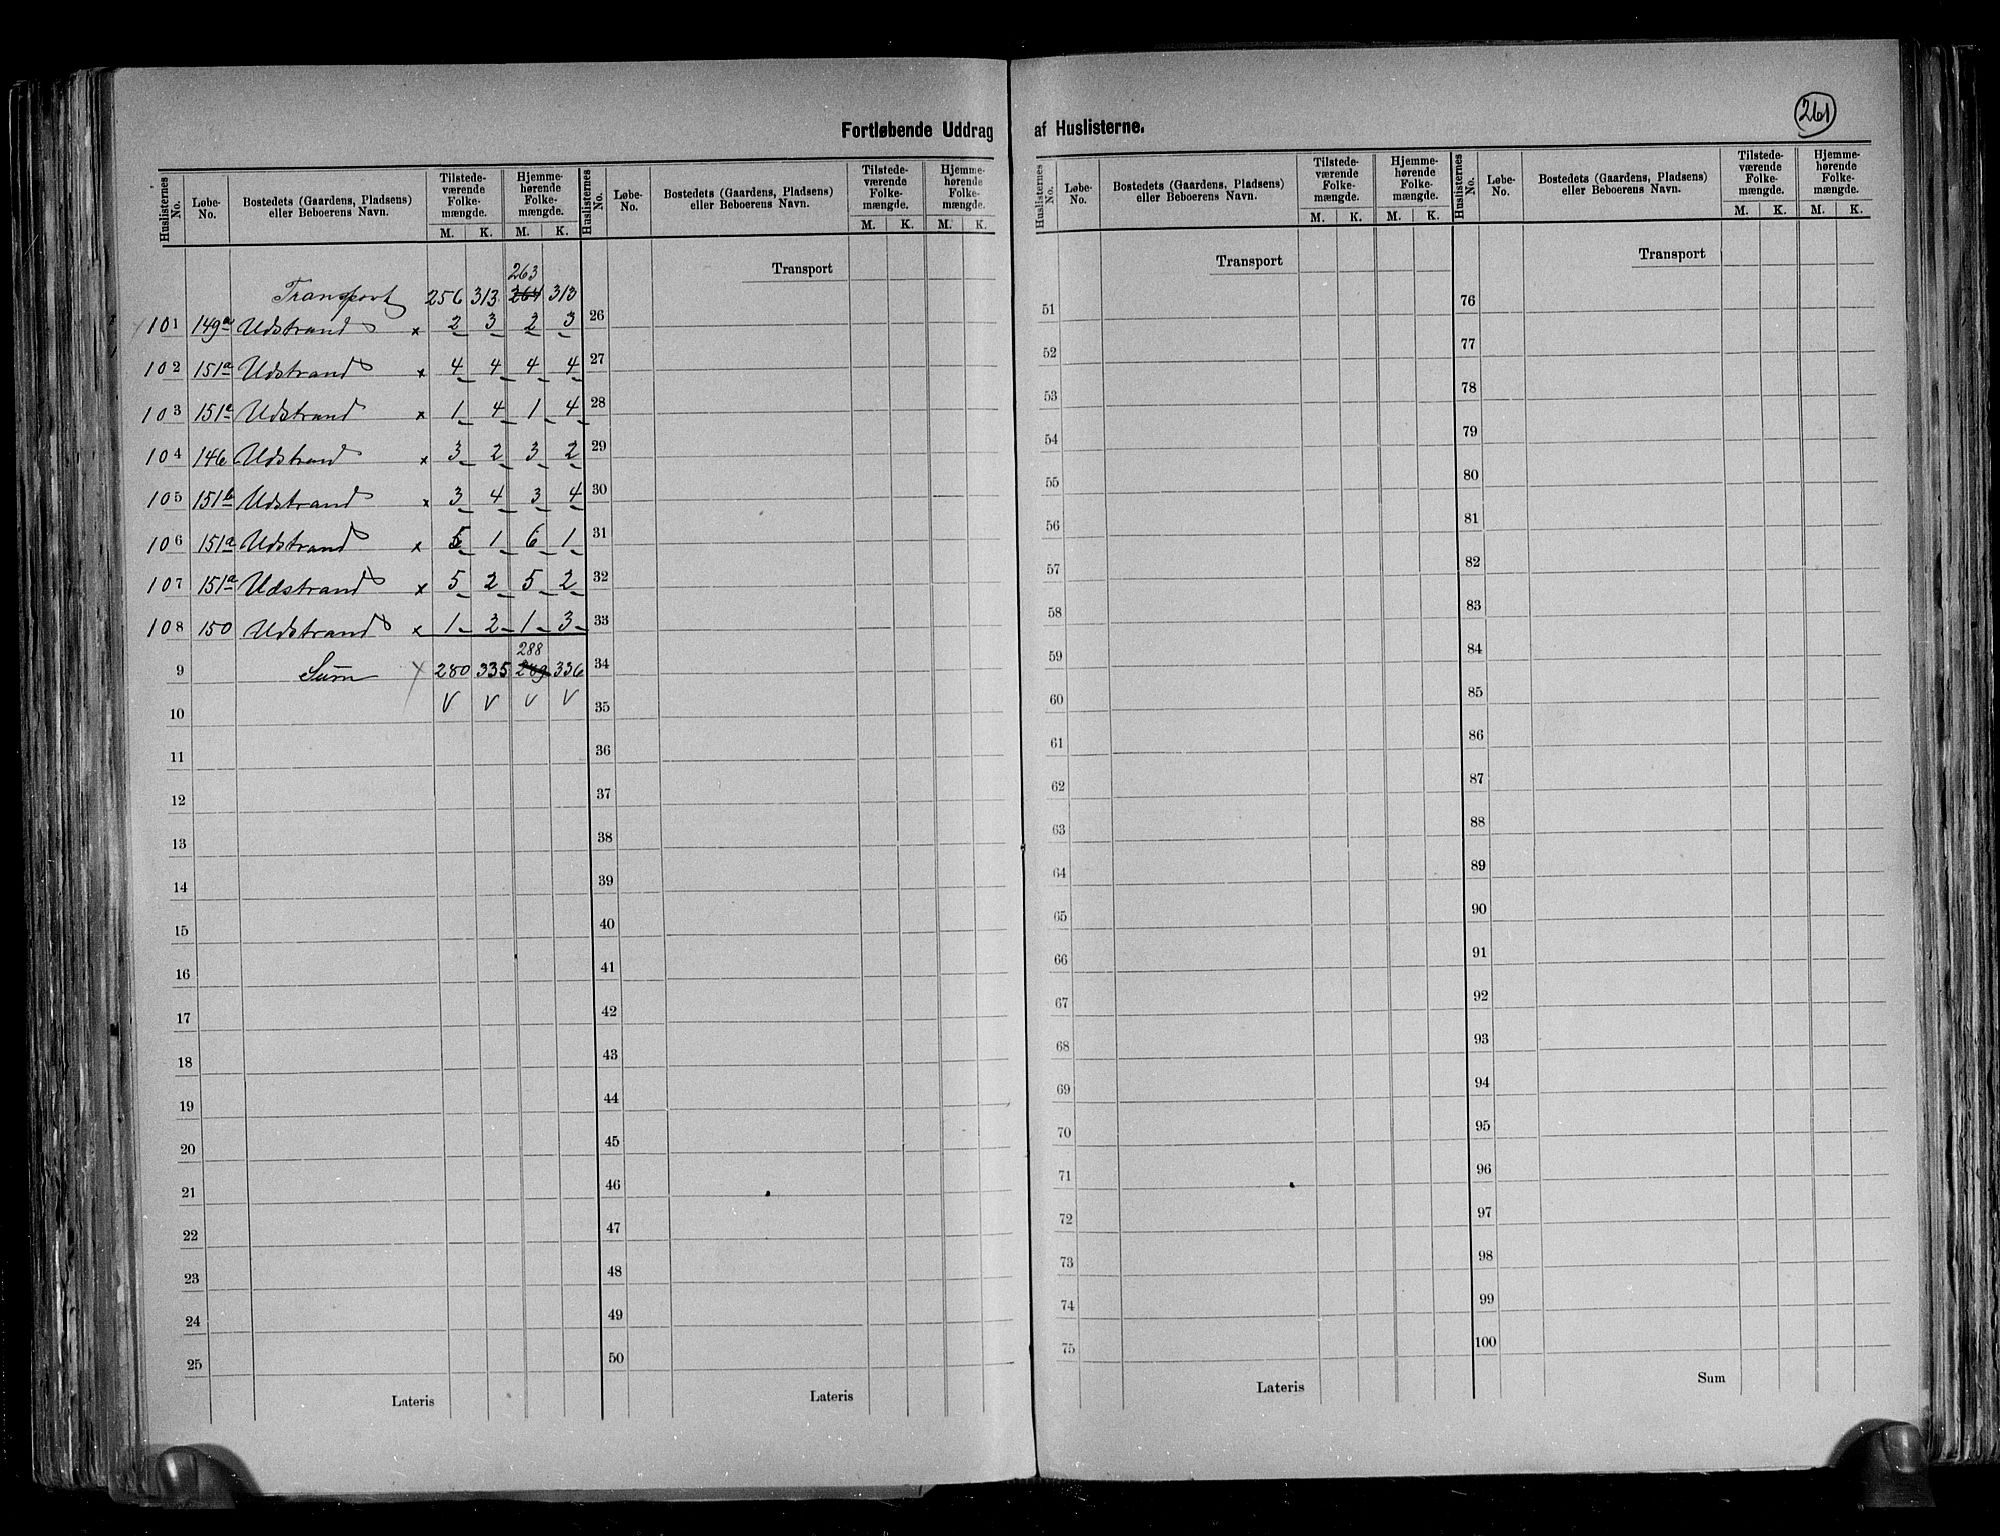 261
Fortløbende Uddrag af Huslisterne.
Huslisternes No. | Løbe-No. | Bostedets (Gaardens, Pladsens) eller Beboerens Navn. | Tilstedeværende Folkemængde. M. K. | Hjemmehørende Folkemængde. M. K.
Huslisternes No. | Løbe-No. | Bostedets (Gaardens, Pladsens) eller Beboerens Navn. | Tilstedeværende Folkemængde. M. K. | Hjemmehørende Folkemængde. M. K.
Huslisternes No. | Løbe-No. | Bostedets (Gaardens, Pladsens) eller Beboerens Navn. | Tilstedeværende Folkemængde. M. K. | Hjemmehørende Folkemængde. M. K.
Huslisternes No. | Løbe-No. | Bostedets (Gaardens, Pladsens) eller Beboerens Navn. | Tilstedeværende Folkemængde. M. K. | Hjemmehørende Folkemængde. M. K.
263
Transport 256 313 264 313
101 149a Udstrand x 2 3 2 3
102 151a Udstrand x 4 4 4 4
103 151a Udstrand x 1 4 1 4
104 146 Udstrand x 3 2 3 2
105 151b Udstrand x 3 4 3 4
106 151a Udstrand x 5 1 6 1
107 151a Udstrand x 5 2 5 2
108 150 Udstrand x 1 2 1 3
288
9 Sum x 280 335 289 336
V V V V
10
11
12
13
14
15
16
17
18
19
20
21
22
23
24
25
Lateris
Transport
26
27
28
29
30
31
32
33
34
35
36
37
38
39
40
41
42
43
44
45
46
47
48
49
50
Lateris
Transport
51
52
53
54
55
56
57
58
59
60
61
62
63
64
65
66
67
68
69
70
71
72
73
74
75
Lateris
Transport
76
77
78
79
80
81
82
83
84
85
86
87
88
89
90
91
92
93
94
95
96
97
98
99
100
Sum